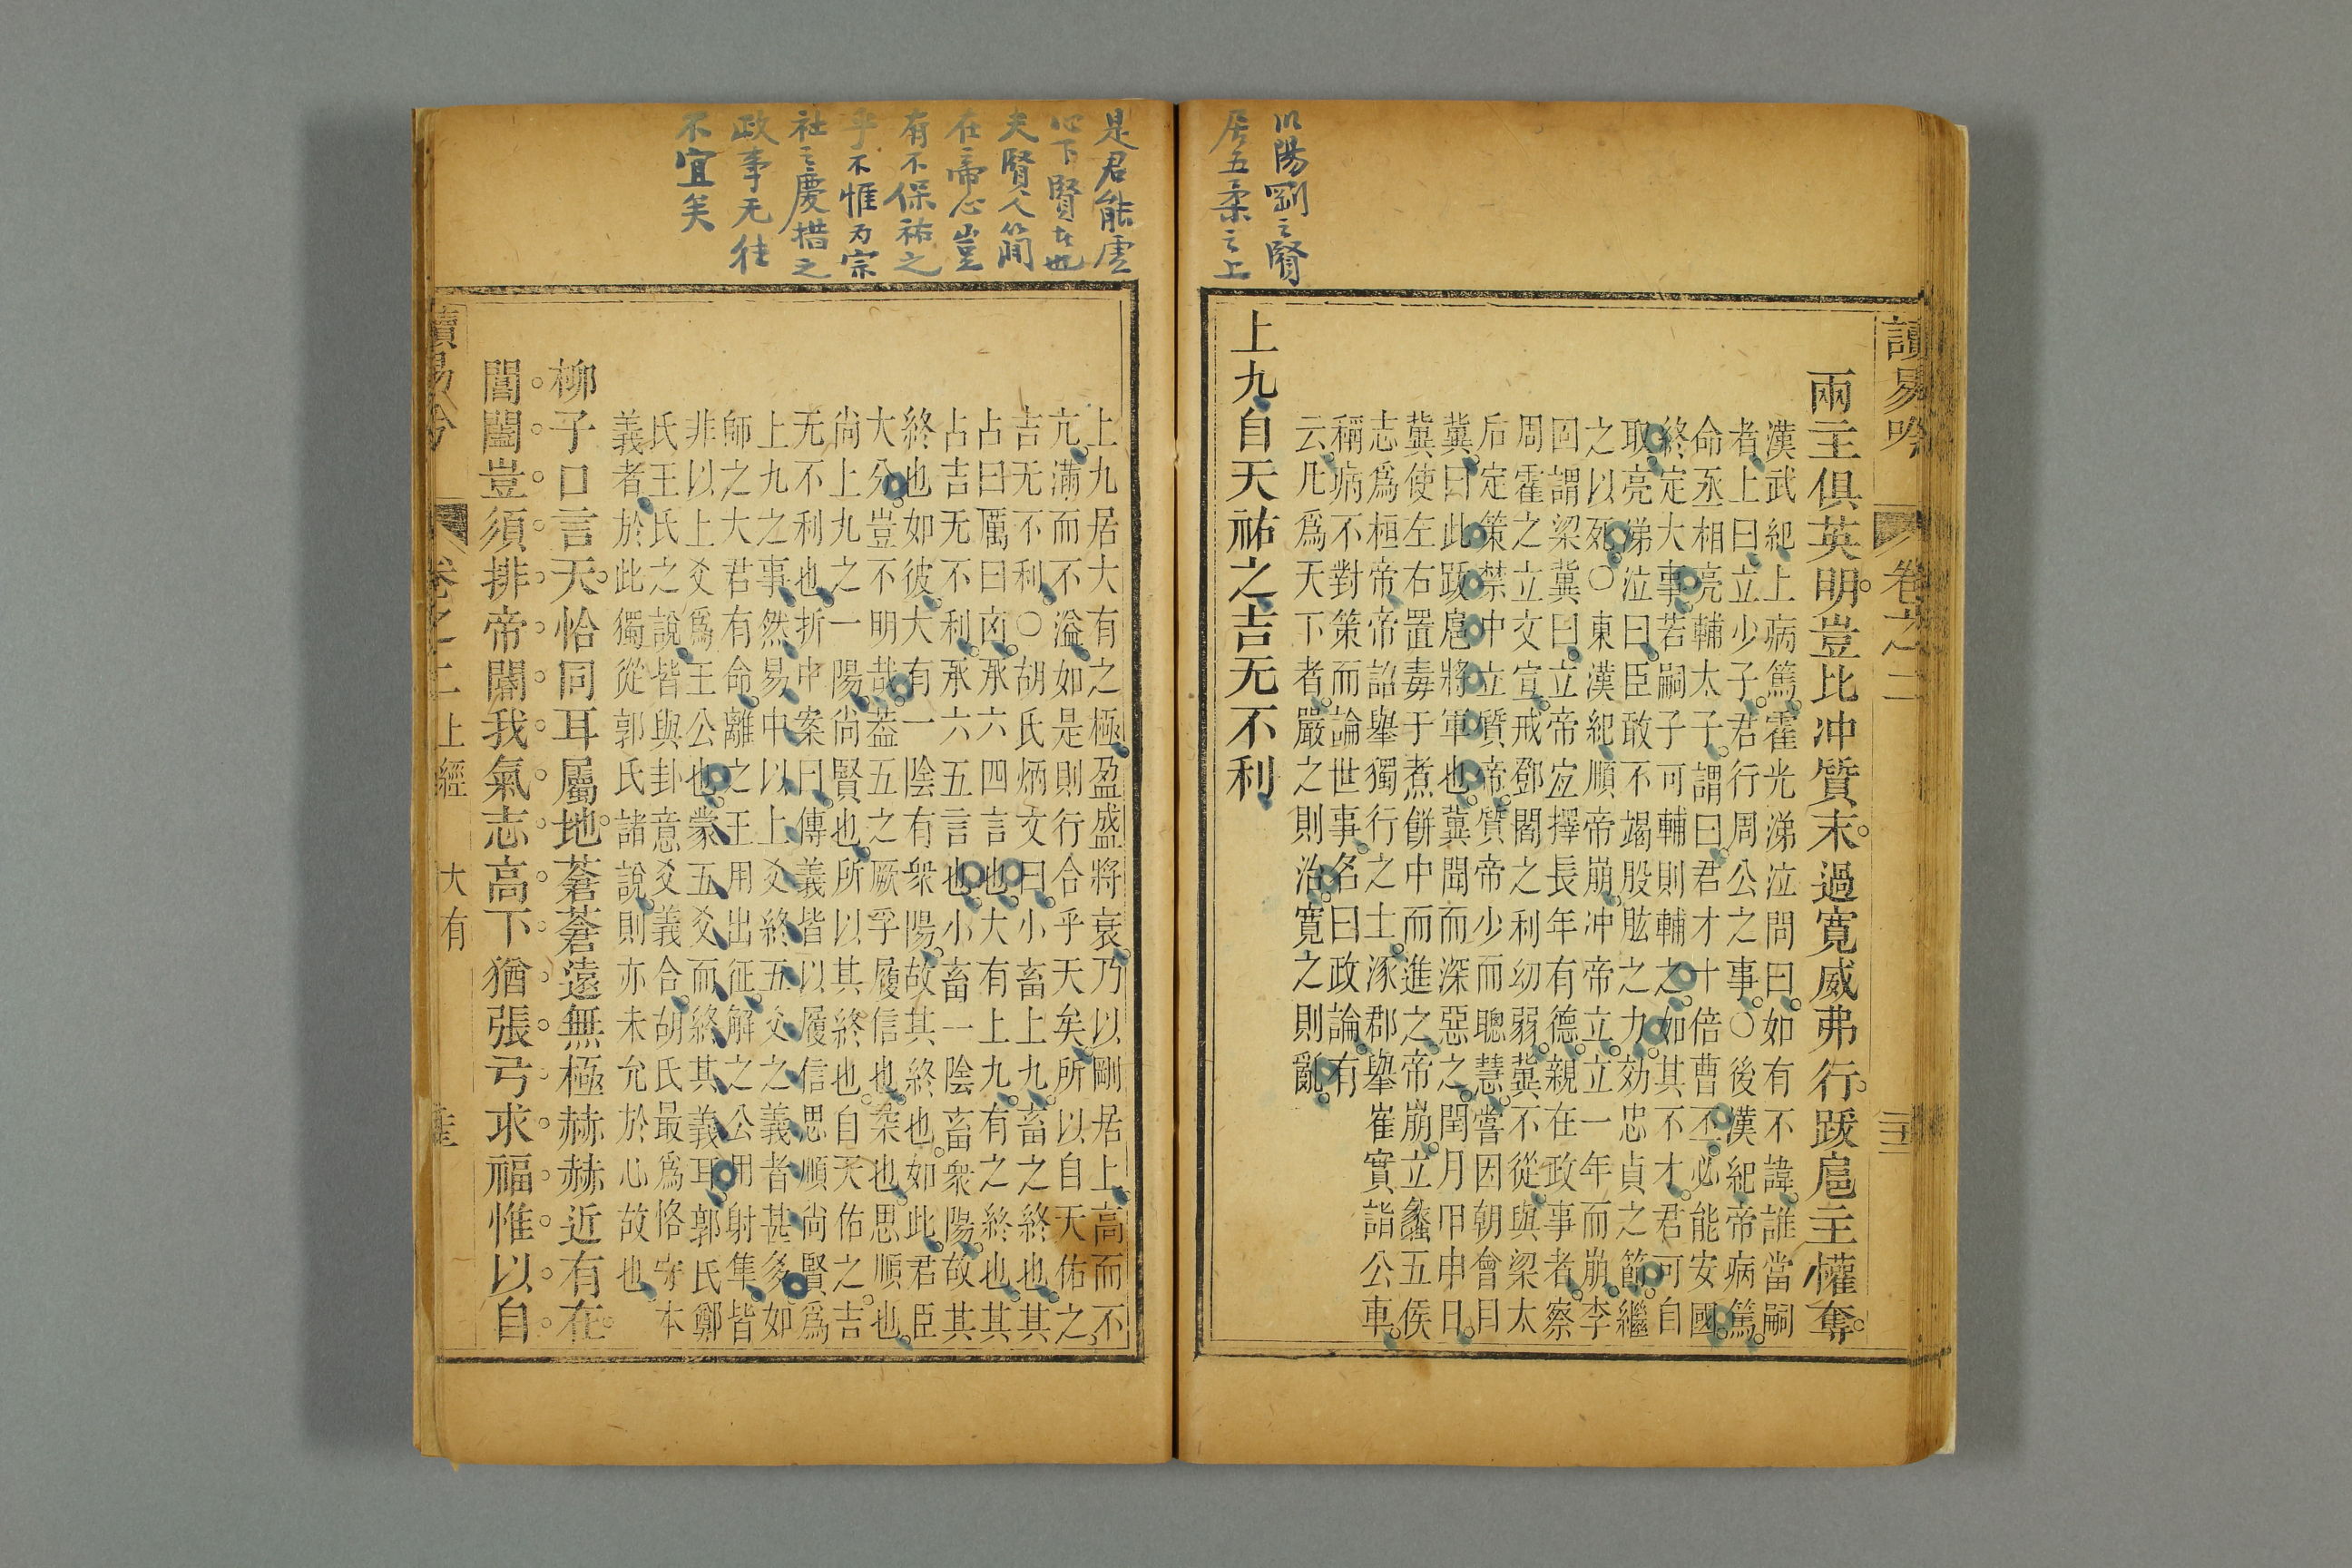 讀易吟
卷之二
兩主俱英明豈比冲質末過寬威弗行跋扈主權奪
漢武紀上病篤霍光涕泣問曰如有不諱誰當嗣
者上曰立少子君行周公之事○後漢紀帝病篤
命丞相亮輔太子謂曰君才十倍曹丕必能安國
終定大事若嗣子可輔則輔之如其不才君可自
取亮涕泣曰臣敢不竭股肱之力効忠貞之節繼
之以死○東漢紀順帝崩冲帝立立一年而崩李
固謂梁冀曰立帝宜擇長年有德親在政事者察
周霍之立文宣戒鄧閻之利幼弱冀不從與梁太
后定策禁中立質帝質帝少而聰慧嘗因朝會目
冀曰此跋扈將軍也冀聞而深惡之閏月甲申日
冀使左右置毒于煮餅中而進之帝崩立蠡五侯
志為桓帝帝詔舉獨行之士涿郡舉崔寔詣公車
稱病不對策而論世事名曰政論有
云凡爲天下者嚴之則治寬之則亂
上九自天祐之吉无不利
以陽剛之賢
居五柔之上
是君能虛
心下賢者也
夫賢人簡
在帝心豈
有不保祐之
乎不惟爲宗
社之慶措之
政事无往
不宜矣
上九居大有之極盈盛將衰乃以剛居上高而不
亢滿而不溢如是則行合乎天矣所以自天佑之
吉无不利○胡氏炳文曰小畜上九畜之終也其
占曰厲曰凶承六四言也大有上九有之終也其
占吉无不利承六五言也小畜一陰畜衆陽故其
終也如彼大有一陰有衆陽故其終也如此君臣
大分豈不明哉葢五之厥孚履信也柔也思順也
尚上九之一陽尚賢也所以其終也自天佑之吉
无不利也折中案曰傳義皆以履信思順尚賢爲
上九之事然易中以上爻終五爻之義者甚多如
師之大君有命離之王用出征解之公用射隼皆
非以上爻爲王公也蒙五爻而終其義耳郭氏鄭
氏王氏之說皆與卦意爻義合胡氏最爲恪守本
義者於此獨從郭氏諸說則亦未允於心故也
柳子口言天恰同耳屬地蒼蒼遠無極赫赫近有在
閶闔豈須排帝閽我氣志高下猶張弓求福惟以自
讀易吟
卷之二 上經 大有